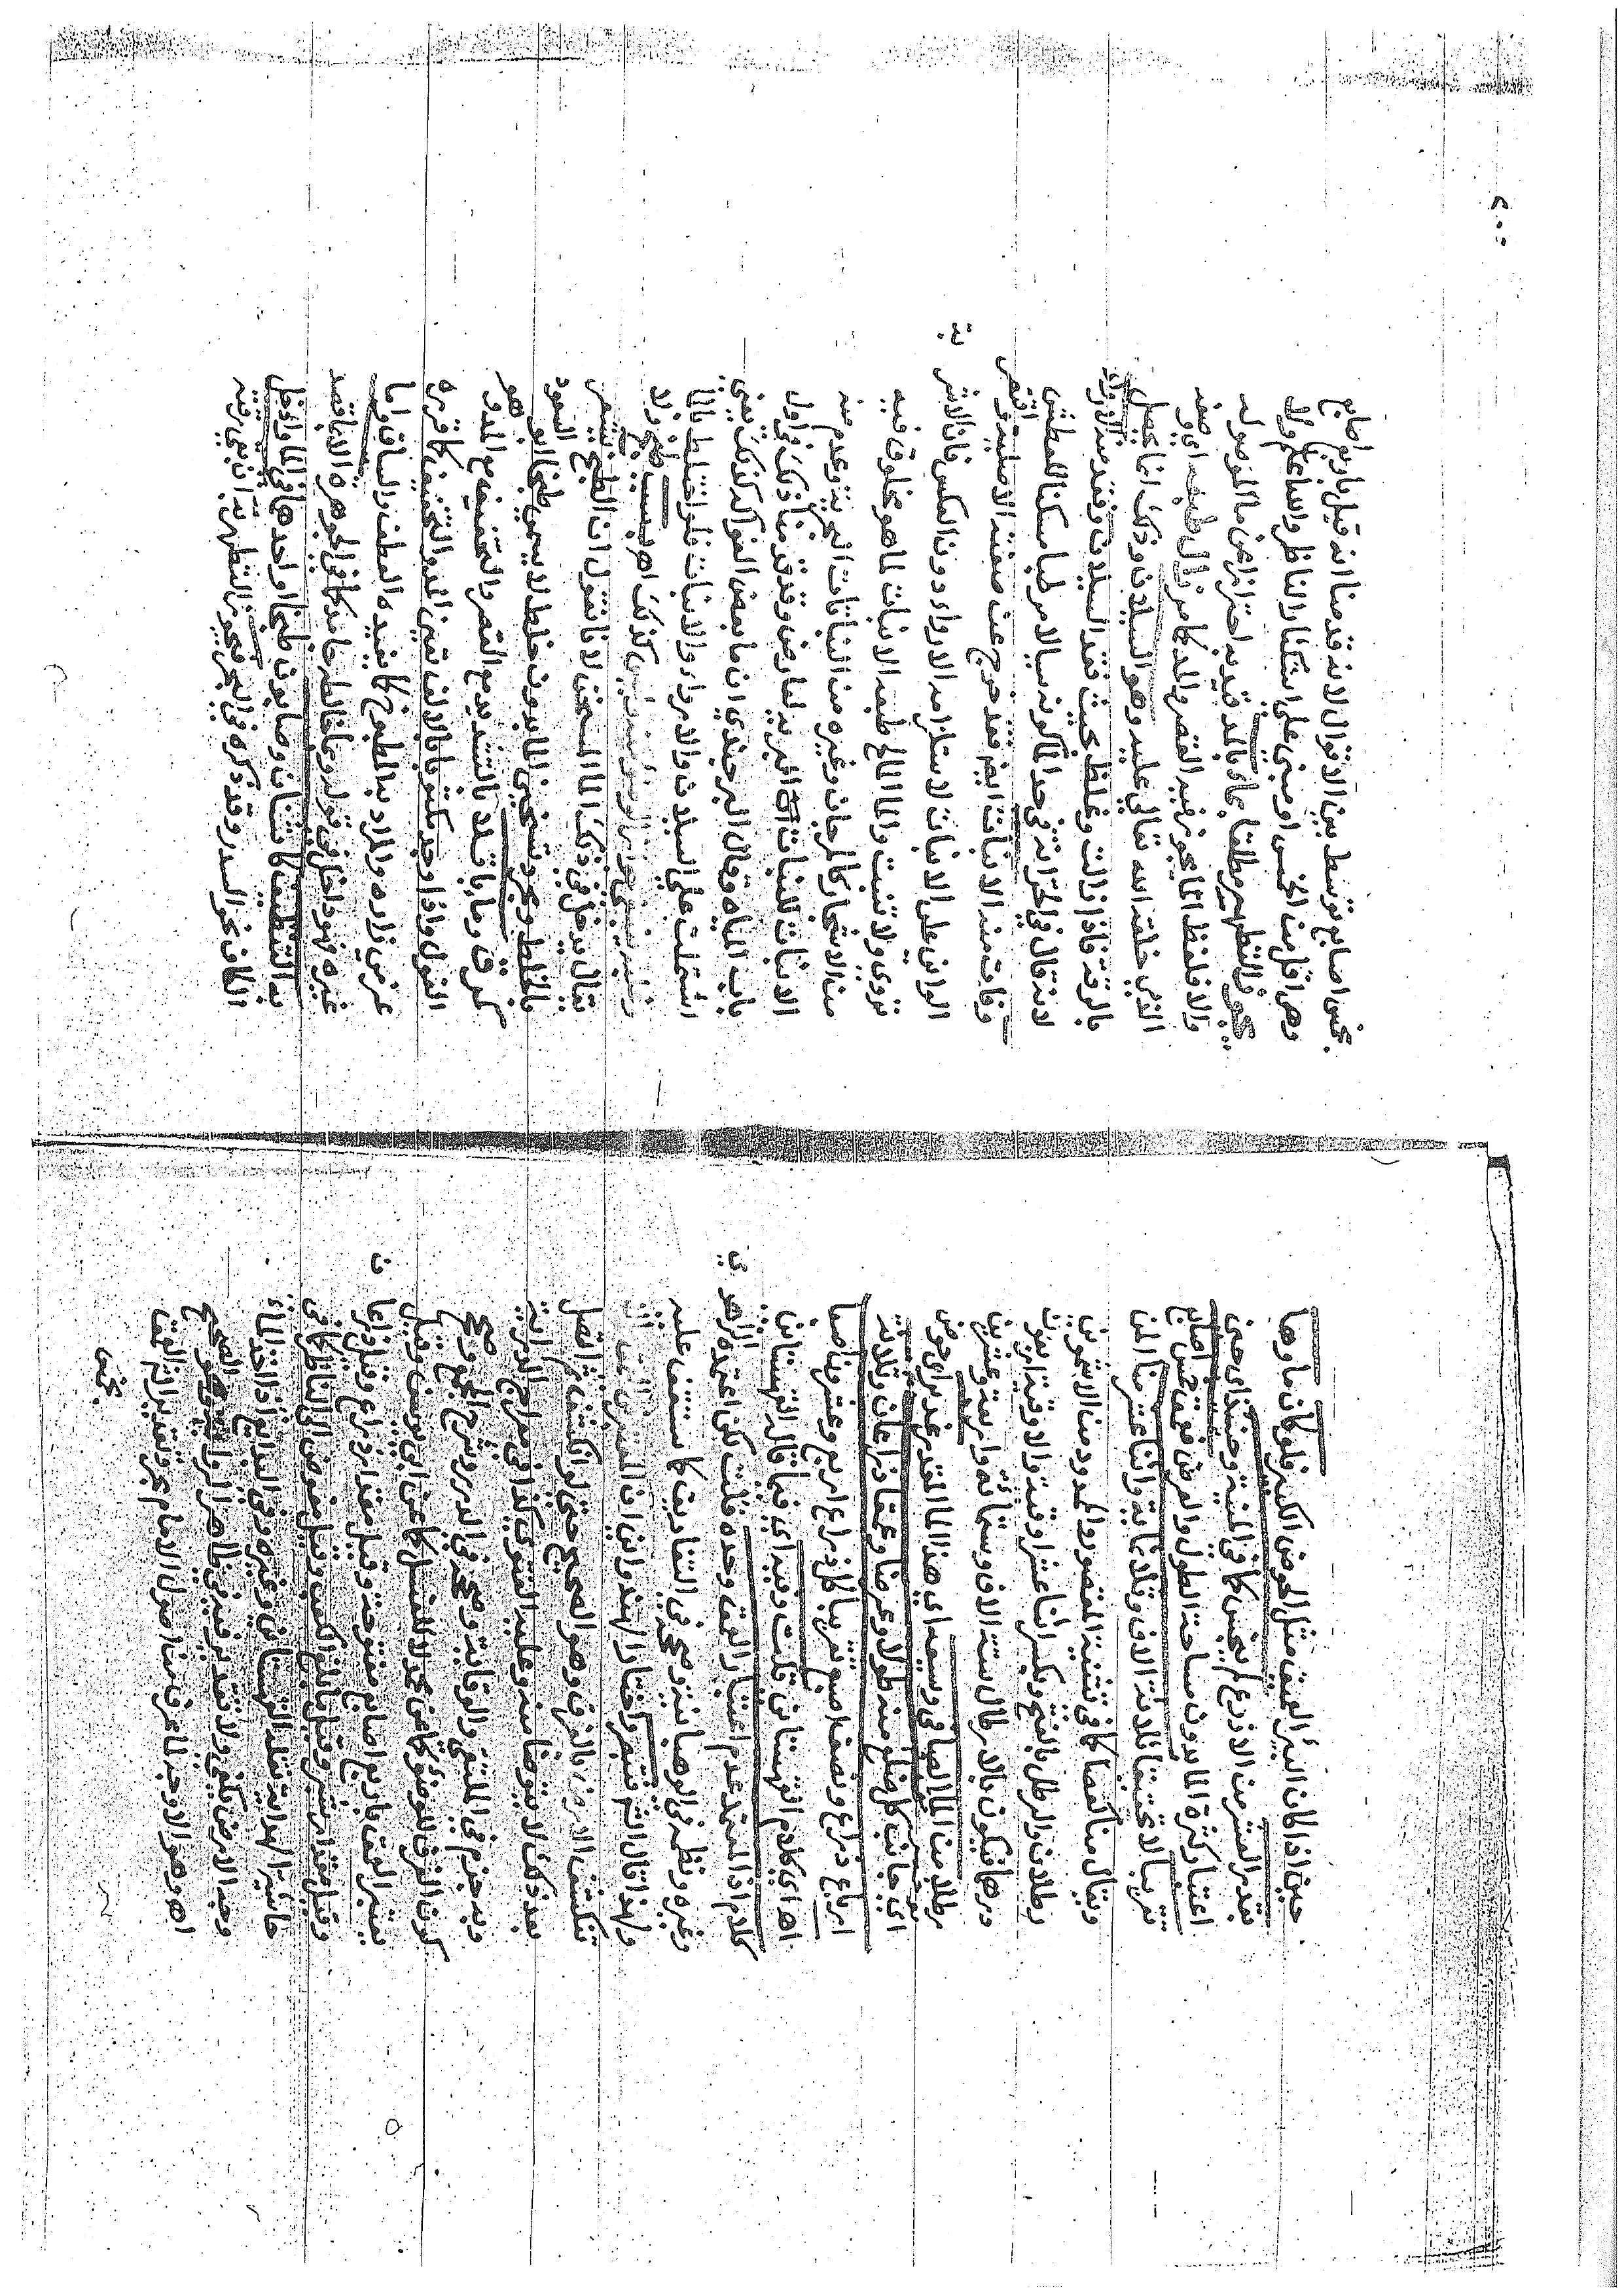 حين اذا كان البئر العف مثل الحوض الكبير فلو كان ماؤها
بقدر العشر من الاذرع لم ينجس كما في المنية وحينئذ اي حين
اعتبار كثرة الماء بدون مساحة الطول والعرض فعمق خمس اصابع
تقريبا لا تحقيقا ثلاثة الاف وثلاثمائة واثنا عشر منا المن
ويقال منا كعصا كما في تثنية المقصور والممدود منا لاشمون
رطلان والرطل بالفتح ويكسر اثنا عشر اوقية والاوقية اربعون
درهما فيكون بالارطال ستة الاف وستمائة واربعة وعشرين
رطلا من الماء الصافي ويسعه اي هذا الماء المقدر غدير اي حوض
اي جانب كل ضلع منه طولا وعرضا وعمقا ذراعان وثلاثة
ارباع ذراع ونصف اصبع تقريبا كل ذراع اربع وعشرون اصبعا
اهـ اي كلام القهستاني قلت وفيه اي فيما قال القهستاني
كلام اذ المعتمد عدم اعتبار العمق وحده قلت لكن اعتمده الزاهدي
وغيره ونظمه في الوهبانية وصححه في التتارخانية كما ستقف عليه
ولهذا قال الشم فتبصر واختار الهندواني ان العمق
تنكشف الارض بالغرف وهو الصحيح حتى لو انكشف ثم اتصل
بعد ذلك لا يتوضأ منه وعليه الفتوى كذا في معراج الدراية
وبه جزم في الملتقى والوقاية وصححه في الدرر وشرح المجمع وصحح
كون الغرف للوضوء كما عن محمد لا للغسل كما عن ابي يوسف وقيل
يعتبر العمق باربع اصابع مفتوحة وقيل مقدار ذراع وقيل ذراعا
وقيل مقدار شبر وقيل ما بلغ الكعب وقيل مفوض الى الناظر كما في
حاشية الهداية نقله القهستاني وغيره وفي البدائع اذا اخذ الماء
وجه الارض يكفي ولا تقدير فيه في ظاهر الرواية وهو الصحيح
اهـ وهو الاوجه لما عرف من اصول الامام بحر وتقدير العمق
بخمس
بخمس اصابع توسط بين الاقوال لانه قدمنا انه قيل باربع اصابع
وهي اقل من الخمس او مبنى على استكثار الناظر والله اعلم ولا
يجوز التطهير مطلقا بماء بالمد قيد به احترازا عن ما الموصولة
والا فلفظ الماء يجوز فيه القصر والمد كما مر زال طبعه اي وصفه
الذي خلقه الله تعالى عليه وهو السيلان وذلك انما يحصل
بالرقة فاذا زالت وغلظ بحيث فقد السيلان وفقد منه الارواء
لانه قال في الخزانة في حد الماء كونه سيالا مرطبا مسكنا للعطش
وفات منه الانبات ايضا فقد خرج عن صفته الاصلية واقتصر
الواني على الانبات لاستلزامه الارواء دون العكس فان الاشربة
تروي ولا تنبت والماء المالح طبعه الانبات لما هو مخلوق فيه
من الاشجار كالمرجان وغيره من النباتات البحرية وعدم منه
الانبات للنباتات البرية لعارض وقد قدمنا ذكر زوال
باب المياه وقال البرجندي ان ماء بعض الفواكه كذلك يعني
اشتملت على السيلان والارواء والانبات فلو اختلط بالماء
طبخ ولا
يقال يدخل في ذلك الماء المسخن لانا نقول ان الطبخ يشعر
بالخلط ومجرد تسخين الماء بدون خلط لا يسمى طبخا بحر وهو
كمرق وماء باقلاء بالتشديد مع القصر والتخفيف مع المد وهو
الفول واذا وجد مكتوبا بالالف تعين المد والتخفيف كما قرره
عزمي زاده والمراد به المطبوخ كما يفيده العطف والسياق واما
غيره فهو داخل في قوله وما خالطه جامد كما في الجوهرة الا بما قصد
به التنظيف كاشنان وصابون طبخا او احدهما في الماء واذا ظل
الكاف نحو السدر وقد ذكره في البحر فيجوز التطهر به ان بقي رقته